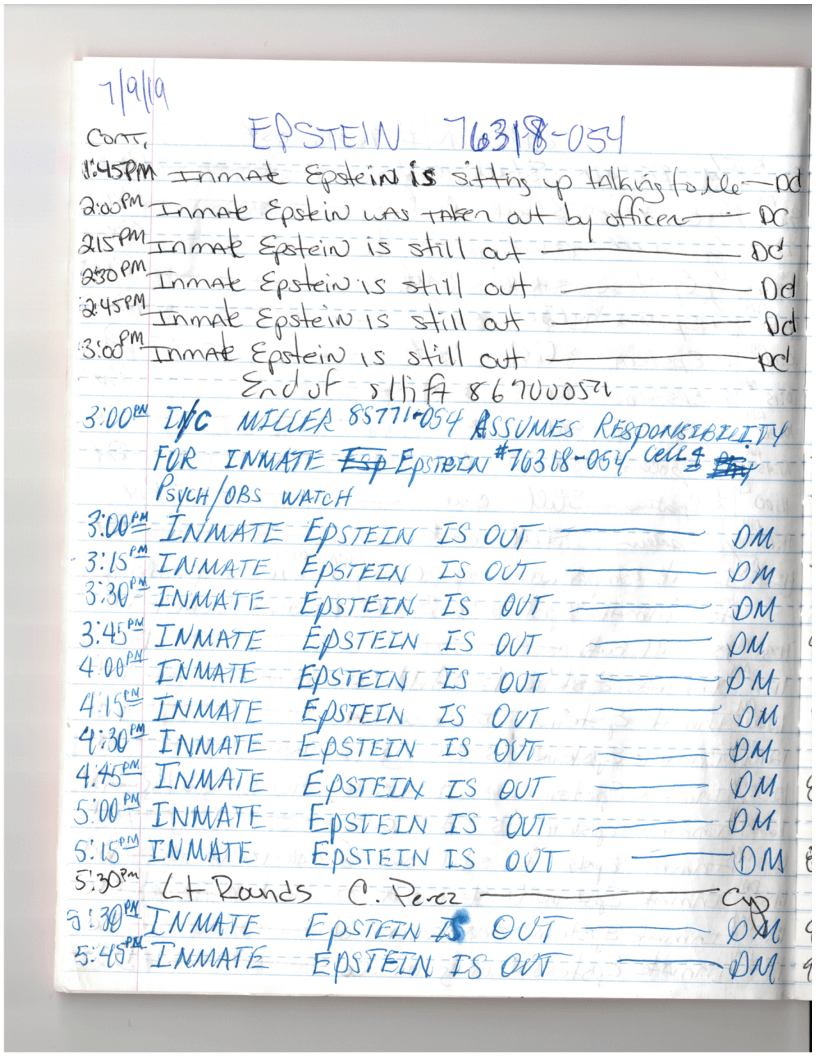 7/9/19
EPSTEIN 76318-054
CONT.
1:45PM Inmate Epstein is sitting up talking to Me — Dd
2:00PM Inmate Epstein was taken out by officer — DC
2:15PM Inmate Epstein is still out — Dd
2:30PM Inmate Epstein is still out — Dd
2:45PM Inmate Epstein is still out — Dd
3:00PM Inmate Epstein is still out — Dd
End of shift
3:00PM I/C MILLER 85771-054 ASSUMES RESPONSIBILITY
FOR INMATE Esp EPSTEIN #76318-054 cell 4
PSYCH/OBS WATCH
3:00PM INMATE EPSTEIN IS OUT — DM
3:15PM INMATE EPSTEIN IS OUT — DM
3:30PM INMATE EPSTEIN IS OUT — DM
3:45PM INMATE EPSTEIN IS OUT — DM
4:00PM INMATE EPSTEIN IS OUT — DM
4:15PM INMATE EPSTEIN IS OUT — DM
4:30PM INMATE EPSTEIN IS OUT — DM
4:45PM INMATE EPSTEIN IS OUT — DM
5:00PM INMATE EPSTEIN IS OUT — DM
5:15PM INMATE EPSTEIN IS OUT — DM
5:30PM Lt Rounds C. Perez — Cyp
5:30PM INMATE EPSTEIN IS OUT — DM
5:45PM INMATE EPSTEIN IS OUT — DM